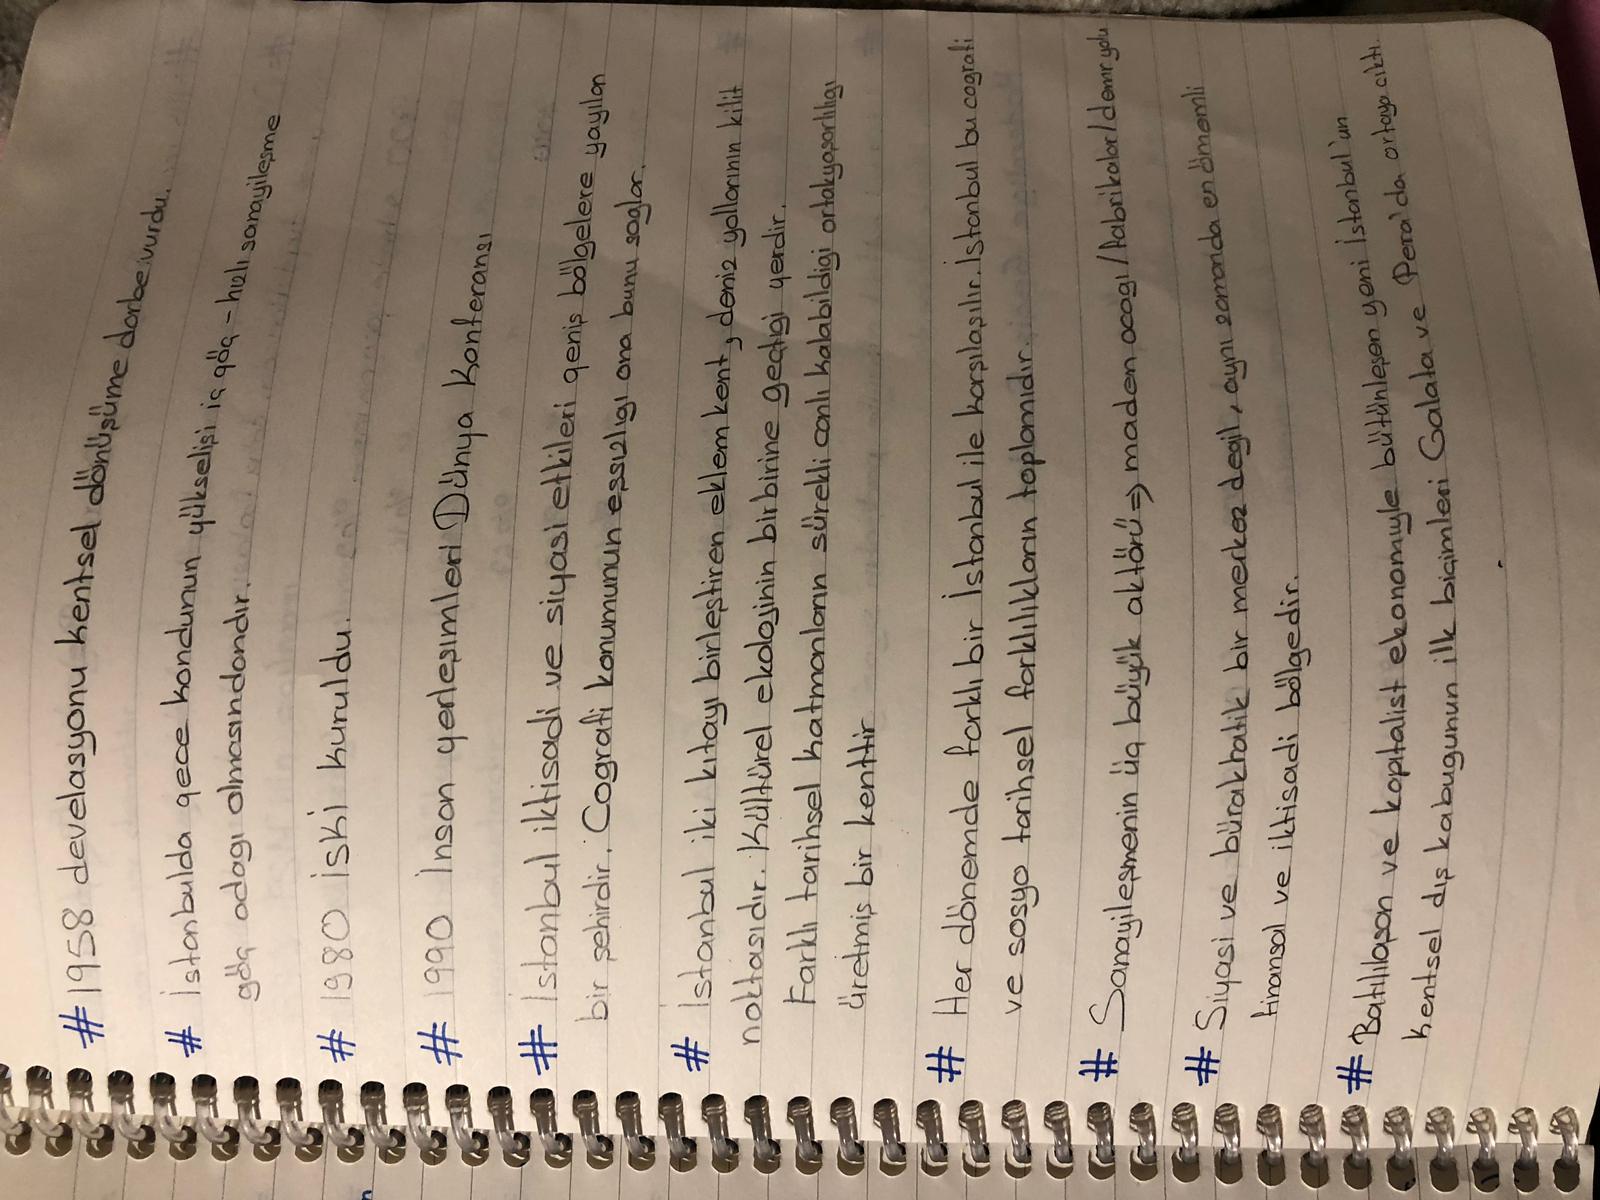 # 1958 develasyonu kentsel dönüşüme darbe vurdu.
# İstanbulda gece kondunun yükselişi iç göç – hızlı sanayileşme
göç odagı olmasındandır.
# 1980 İSKİ kuruldu.
# 1990 İnsan yerleşimleri Dünya Konferansı
# İstanbul iktisadi ve siyasi etkileri geniş bölgelere yayılan
bir şehirdir. Cografi konumunun eşsizligi ona bunu saglar.
# İstanbul iki kıtayı birleştiren eklem kent, deniz yollarının kilit
noktasıdır. Kültürel ekolojinin birbirine geçtigi yerdir.
Farklı tarihsel katmanların sürekli canlı kalabildigi ortakyaşarlılıgı
üretmiş bir kenttir
# Her dönemde farklı bir İstanbul ile karşılaşılır. İstanbul bu cografi
ve sosyo tarihsel farklılıkların toplamıdır.
# Sanayileşmenin üç büyük aktörü => maden ocagı / fabrikalar / demir yolu
# Siyasi ve bürakratik bir merkez degil, aynı zamanda en önemli
finansal ve iktisadi bölgedir.
# Batılılaşan ve kapitalist ekonomiyle bütünleşen yeni İstanbul'un
kentsel dış kabugunun ilk biçimleri Galata ve Pera'da ortaya çıktı.